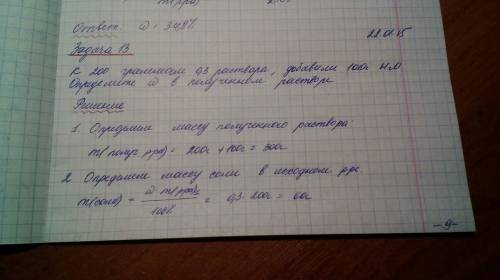 m(рра) 210г
Ответ ω = 34,8%
22.01.15
Задача 13
К 200 граммам 0,3 раствора, добавили 100г H2O
Определите ω в полученном растворе
Решение
1. Определим массу полученного раствора:
m(получ рра) = 200г + 100г = 300г
2 Определим массу соли в исходном рре
m(соли) = ω · m(рра) / 100% = 0,3 · 200г = 60г
-9-